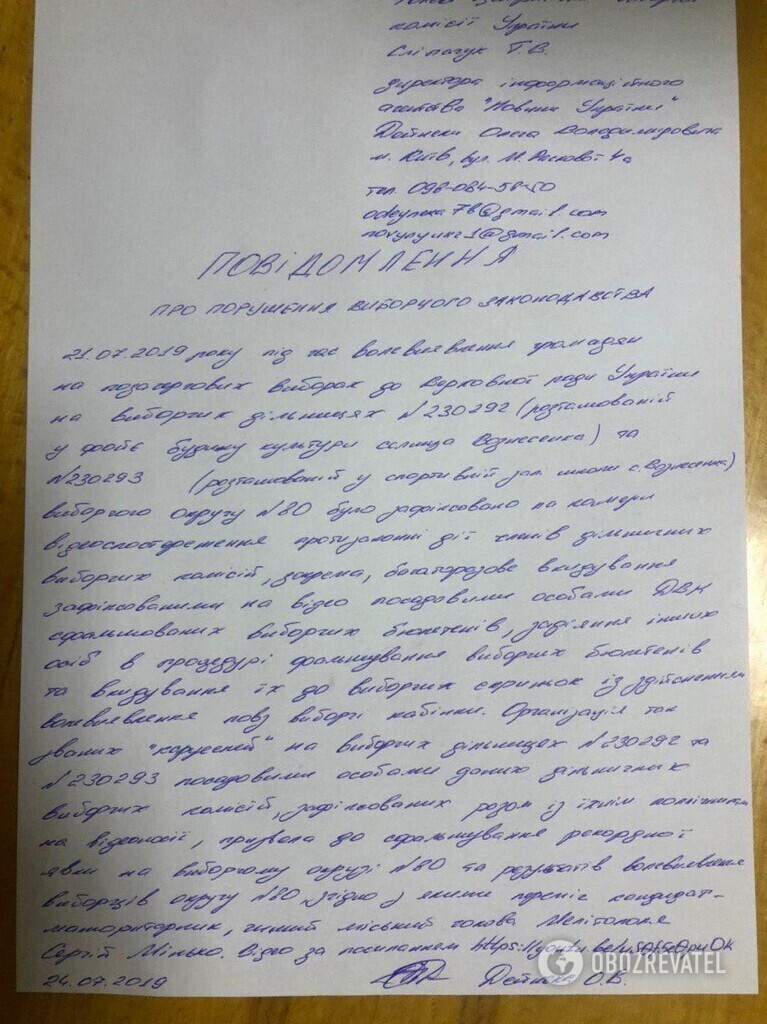 Голові Центральної виборчої
комісії України
Сліпачук Т.В.
директора інформаційного
агентства "Новини України"
Дейнеки Олега Володимировича
м. Київ, вул. М. Раскової 4а
тел. 098-084-58-50
odeyneka78@gmail.com
novynyukr1@gmail.com
ПОВІДОМЛЕННЯ
ПРО ПОРУШЕННЯ ВИБОРЧОГО ЗАКОНОДАВСТВА
21.07.2019 року під час волевиявлення громадян
на позачергових виборах до Верховної ради України
на виборчих дільницях №230292 (розташованій
у фойє будинку культури селища Вознесенка) та
№230293 (розташованій у спортивній залі школи с. Вознесенка)
виборчого округу №80 було зафіксовано на камери
відеоспостереження протизаконні дії членів дільничних
виборчих комісій, зокрема, багаторазове вкидування
зафіксованими на відео посадовими особами ДВК
сфальшованих виборчих бюлетенів, задіяння інших
осіб в процедурі фальшування виборчих бюлетенів
та вкидування їх до виборчих скриньок із здійсненням
волевиявлення повз виборчі кабінки. Організація так
званих "каруселей" на виборчих дільницях №230292 та
№230293 посадовими особами даних дільничних
виборчих комісій, зафіксованих разом із їхнім
на відеоносії, призвела до сфальшування рекордної
явки на виборчому окрузі №80 та результатів волевиявлення
виборців округу №80, згідно з якими переміг кандидат-
мажоритарник, чинний міський голова Мелітополя
Сергій Мінько. Відео за посиланням
24.07.2019 Дейнека О.В.
OBOZREVATEL